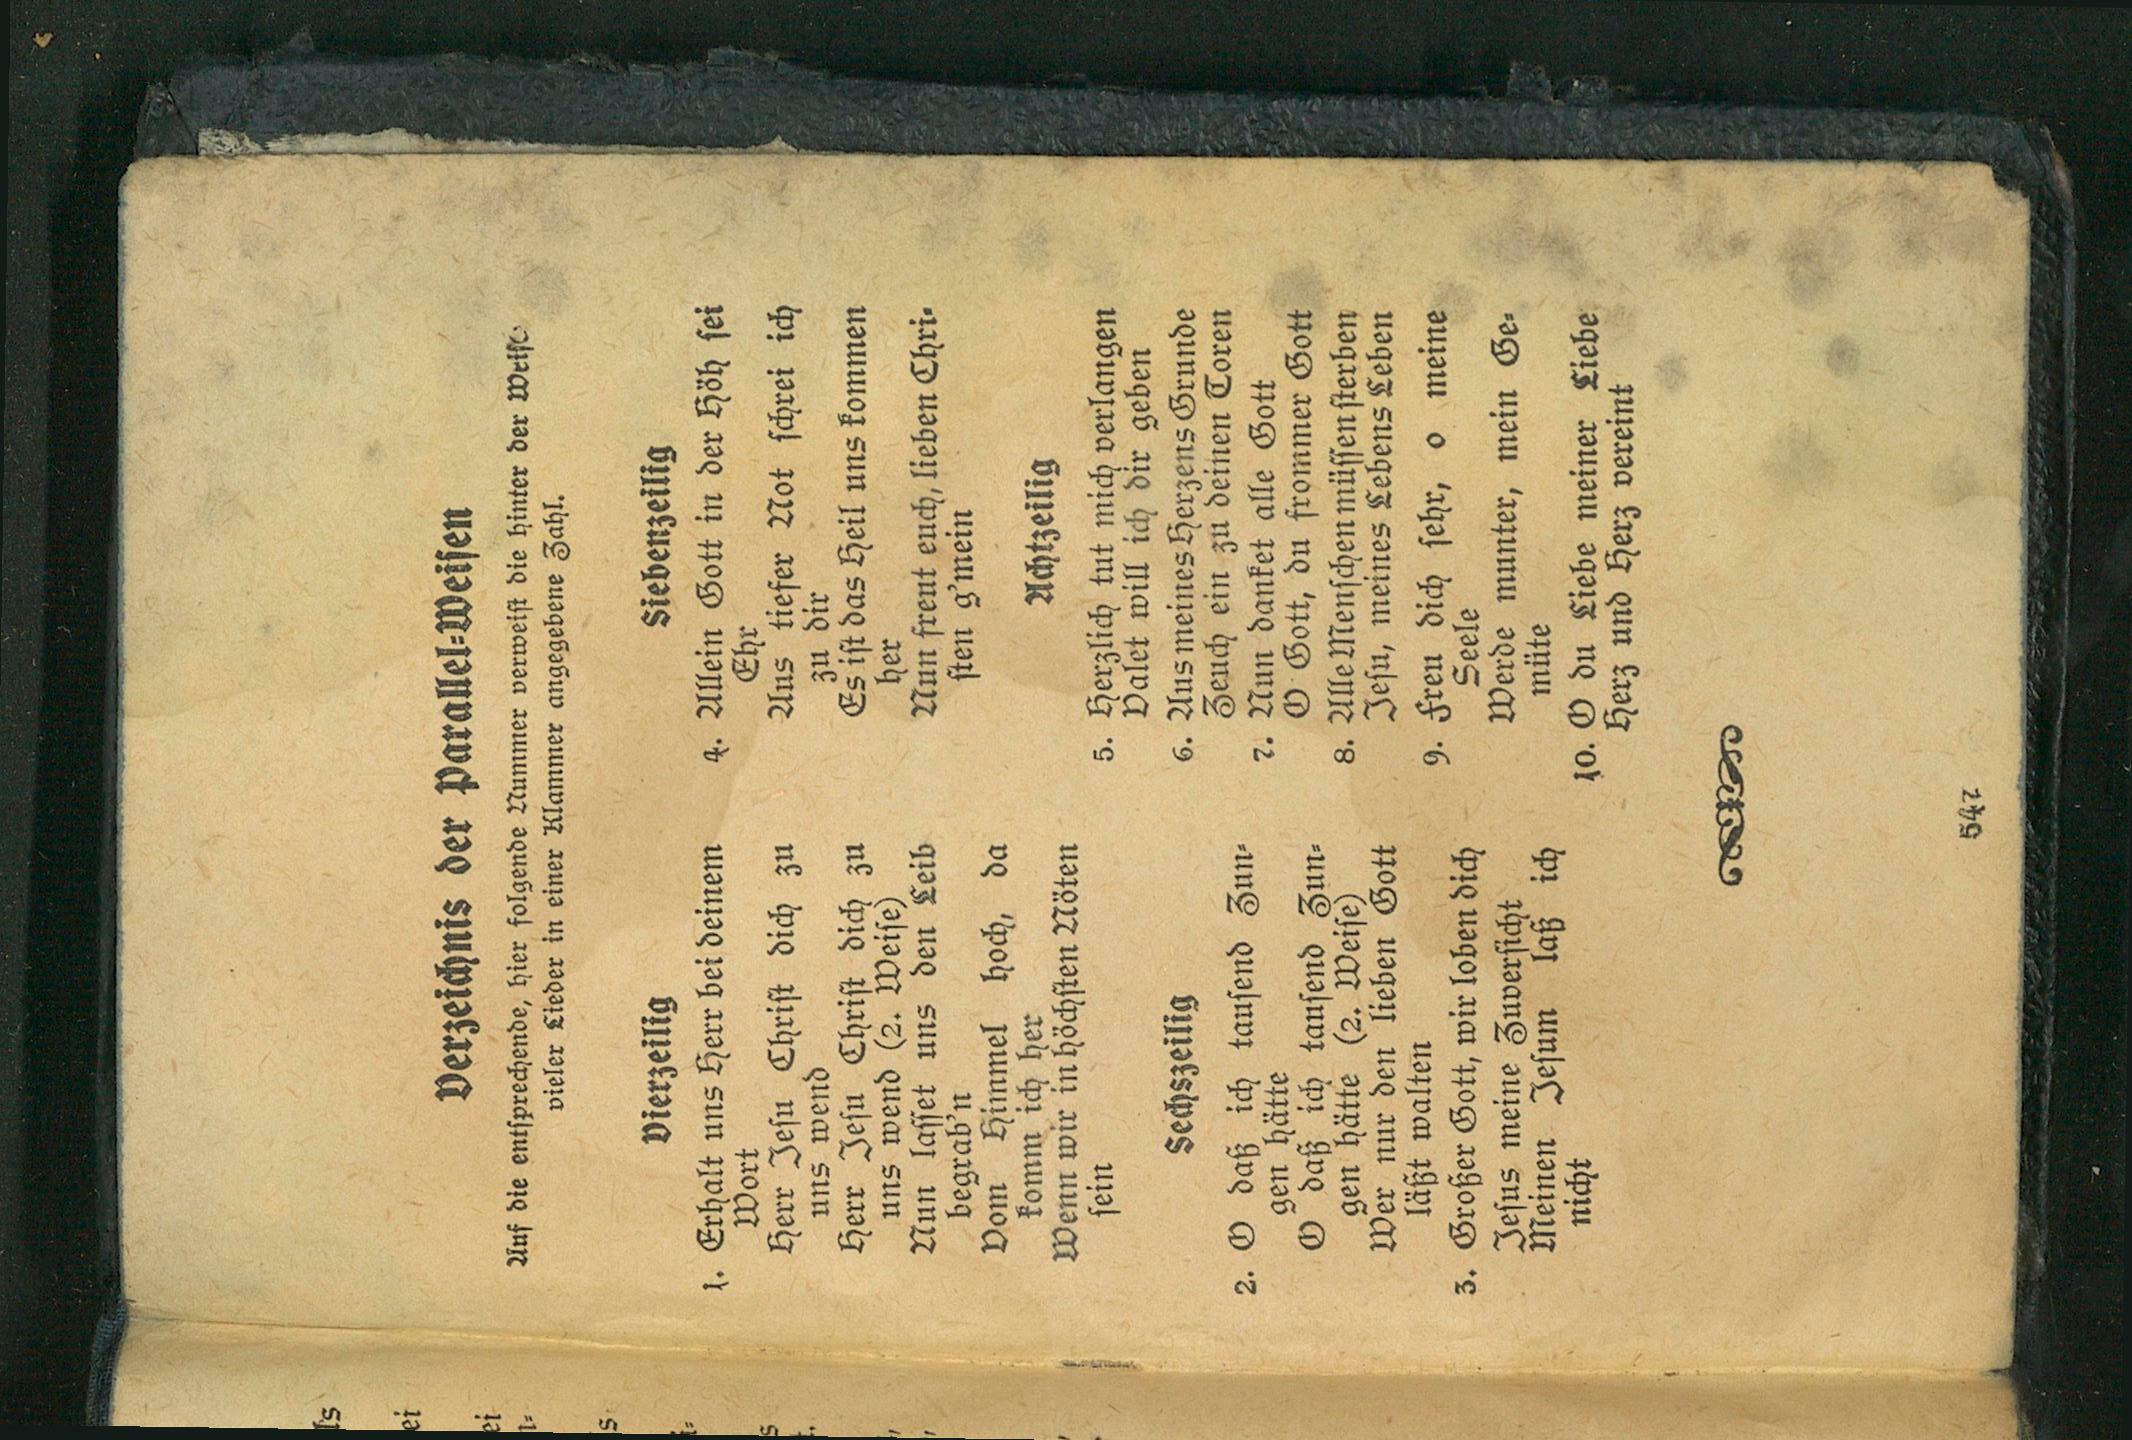 Verzeichnis der Parallel-Weisen
Auf die entsprechende, hier folgende Nummer verweist die hinter der Weise
vieler Lieder in einer Klammer angegebene Zahl.
Vierzeilig
1. Erhalt uns Herr bei deinem
Wort
Herr Jesu Christ dich zu
uns wend
Herr Jesu Christ dich zu
uns wend (2. Weise)
Nun lasset uns den Leib
begrab'n
Vom Himmel hoch, da
komm ich her
Wenn wir in höchsten Nöten
sein
Sechszeilig
2. O daß ich tausend Zun-
gen hätte
O daß ich tausend Zun-
gen hätte (2. Weise)
Wer nur den lieben Gott
läßt walten
3. Großer Gott, wir loben dich
Jesus meine Zuversicht
Meinen Jesum laß ich
nicht
Siebenzeilig
4. Allein Gott in der Höh sei
Ehr
Aus tiefer Not schrei ich
zu dir
Es ist das Heil uns kommen
her
Nun freut euch, lieben Chri-
sten g'mein
Achtzeilig
5. Herzlich tut mich verlangen
Valet will ich dir geben
6. Aus meines Herzens Grunde
Zeuch ein zu deinen Toren
7. Nun danket alle Gott
O Gott, du frommer Gott
8. Alle Menschen müssen sterben
Jesu, meines Lebens Leben
9. Freu dich sehr, o meine
Seele
Werde munter, mein Ge-
müte
10. O du Liebe meiner Liebe
Herz und Herz vereint
547